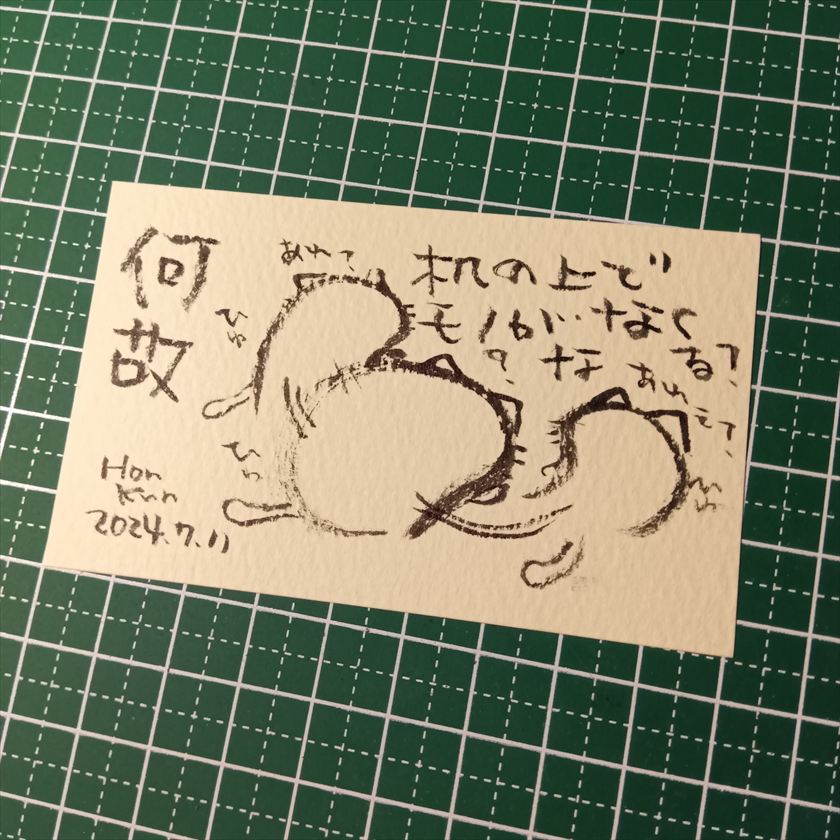 何故
机の上で
モノがなく
なる?
?
あれ?
あれえ?
ひゅ
ひゅ
ひゅ
Hon
Kun
2024.7.11